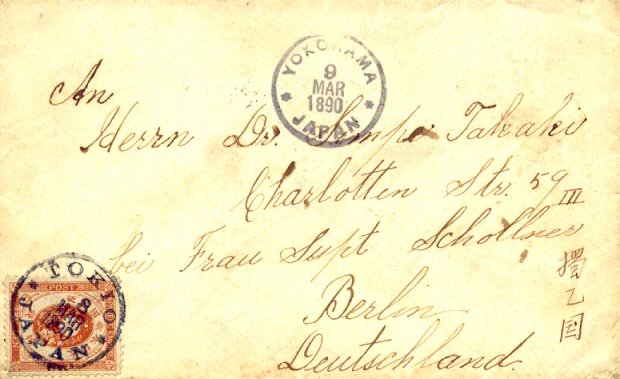 YOKOHAMA
9
MAR
1890
JAPAN
An
Herrn Dr. Simpei Takaki
Charlotten Str. 59 III
bei Frau Supt Schollner
Berlin
Deutschland.
獨乙国
TOKIO
8
MAR
1890
JAPAN
POST